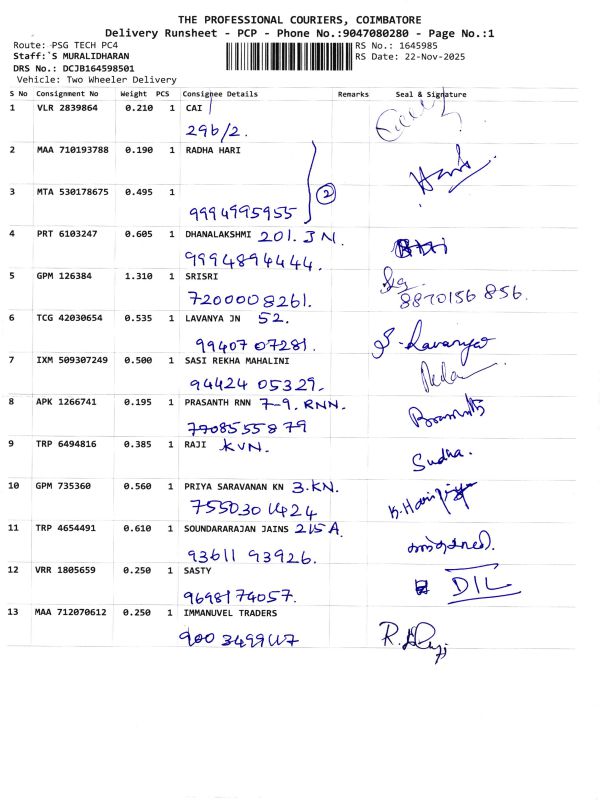 THE PROFESSIONAL COURIERS, COIMBATORE
Delivery Runsheet - PCP - Phone No.:9047080280 - Page No.:1
Route: PSG TECH PC4 RS No.: 1645985
Staff:`S MURALIDHARAN RS Date: 22-Nov-2025
DRS No.: DCJB164598501
Vehicle: Two Wheeler Delivery
S No Consignment No Weight PCS Consignee Details Remarks Seal & Signature
1 VLR 2839864 0.210 1 CAI
296/2.
2 MAA 710193788 0.190 1 RADHA HARI
3 MTA 530178675 0.495 1 2
9994995955
4 PRT 6103247 0.605 1 DHANALAKSHMI 201. JN.
9994894444.
5 GPM 126384 1.310 1 SRISRI
7200008261. 8870156856.
6 TCG 42030654 0.535 1 LAVANYA JN 52.
9940707281. S. Lavanya
7 IXM 509307249 0.500 1 SASI REKHA MAHALINI
94424 05329.
8 APK 1266741 0.195 1 PRASANTH RNN 7-9. RNN.
7708555879
9 TRP 6494816 0.385 1 RAJI KVN.
Sudha.
10 GPM 735360 0.560 1 PRIYA SARAVANAN KN 3.KN.
7550301424
11 TRP 4654491 0.610 1 SOUNDARARAJAN JAINS 215 A.
93611 93926.
12 VRR 1805659 0.250 1 SASTY DIL
9698174057.
13 MAA 712070612 0.250 1 IMMANUVEL TRADERS